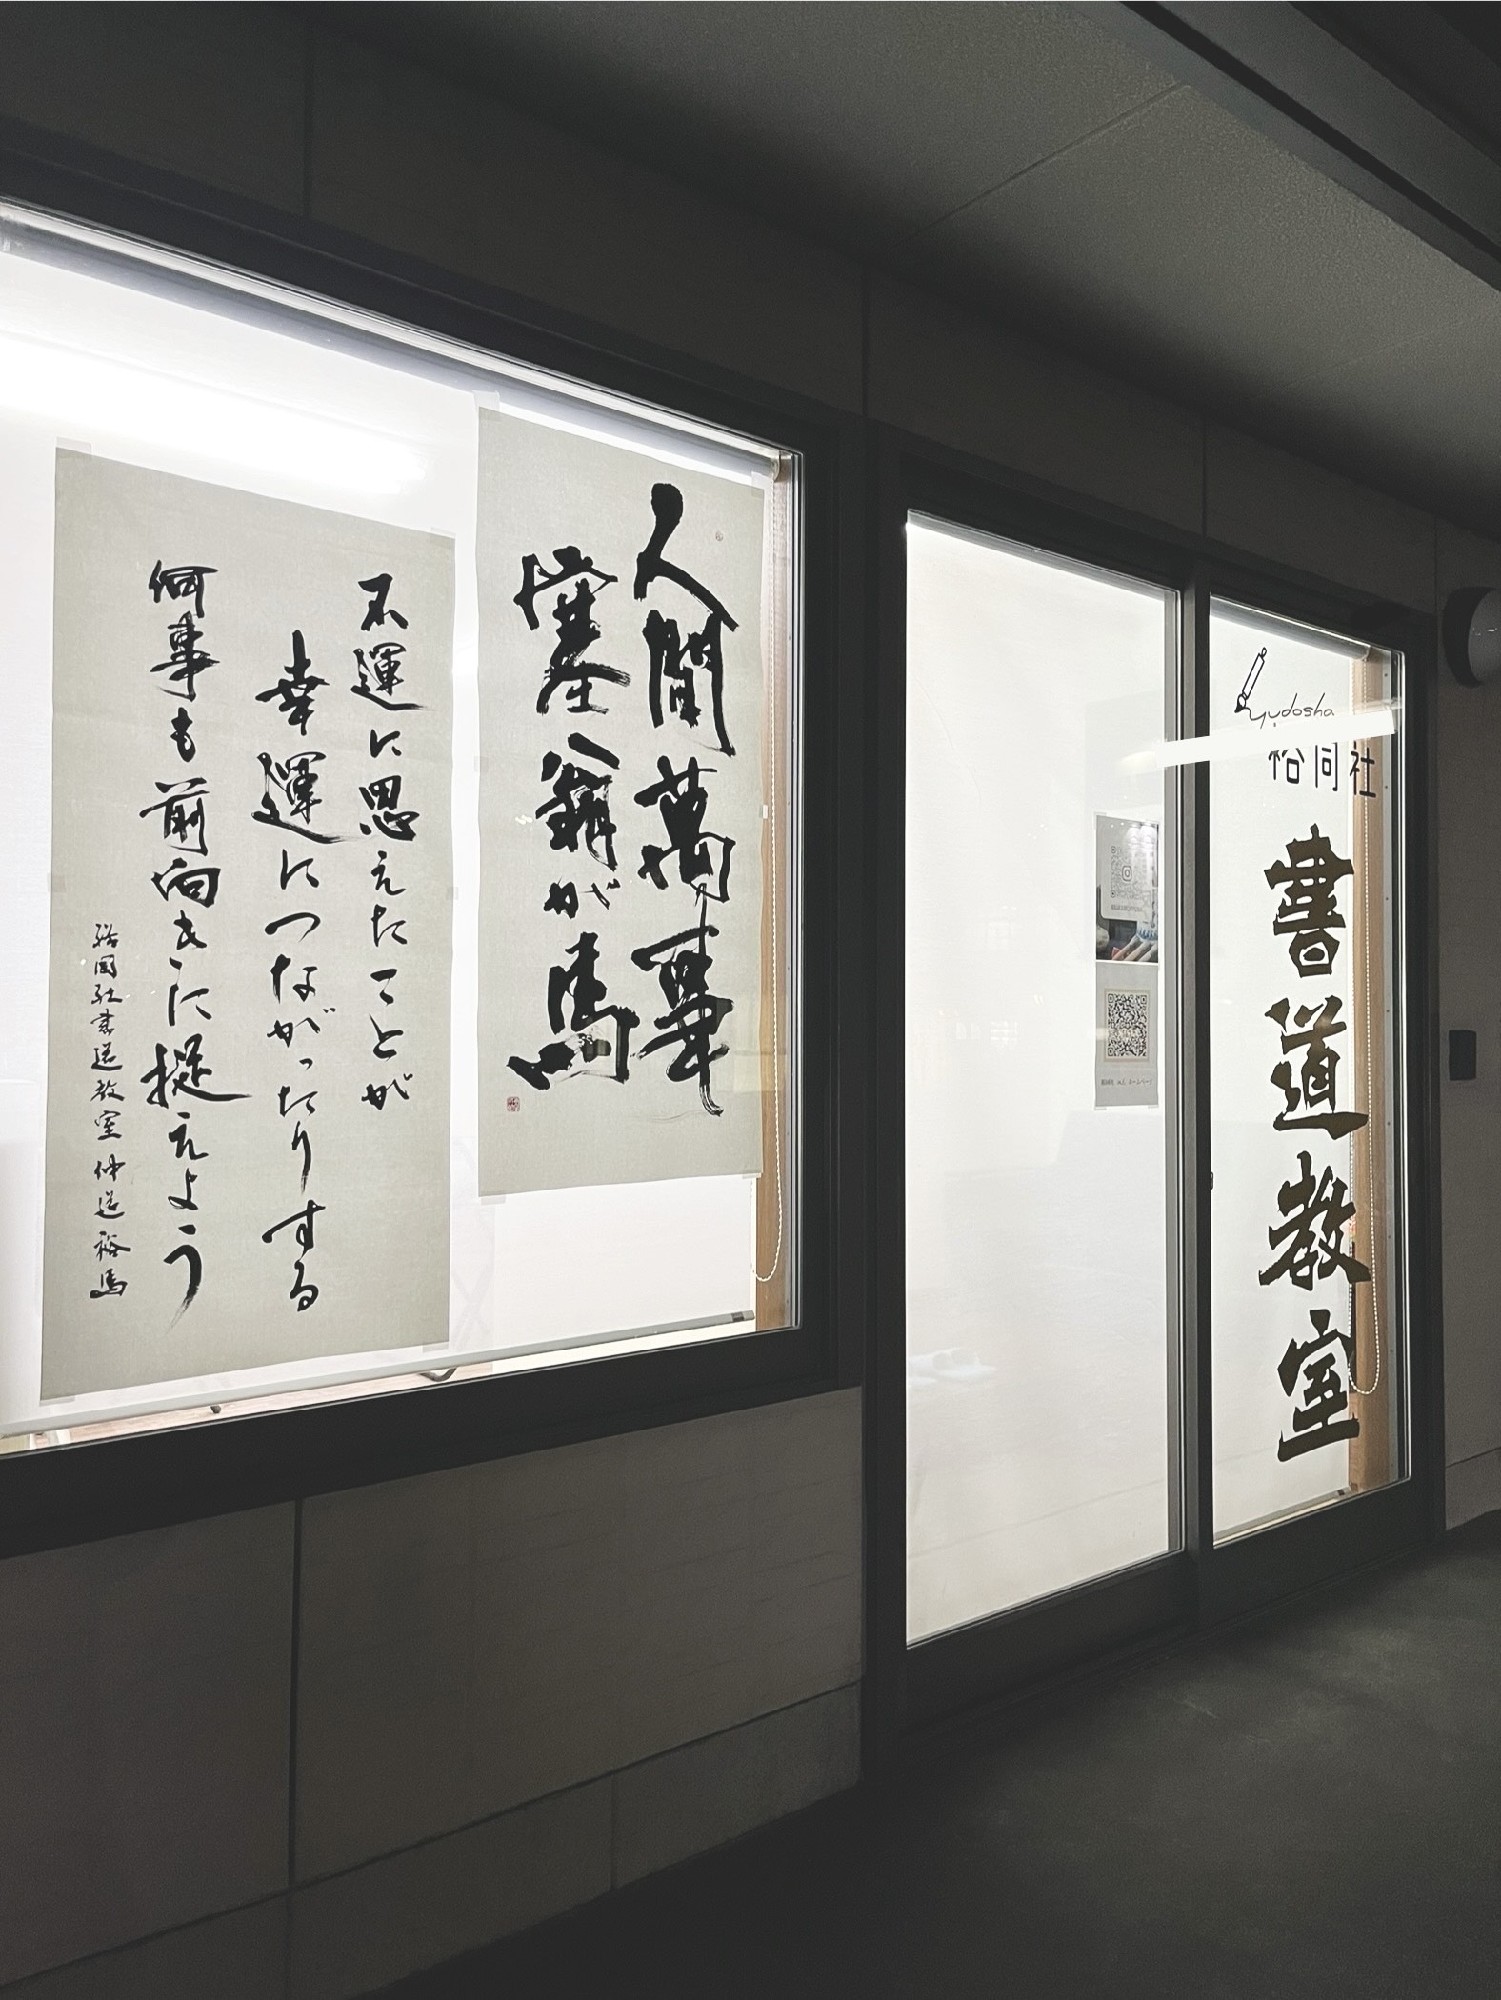 人間萬事
塞翁が馬
不運に思えたことが
幸運につながったりする
何事も前向きに捉えよう
裕同社書道教室 仲道裕馬
yudosha
裕同社
書道教室